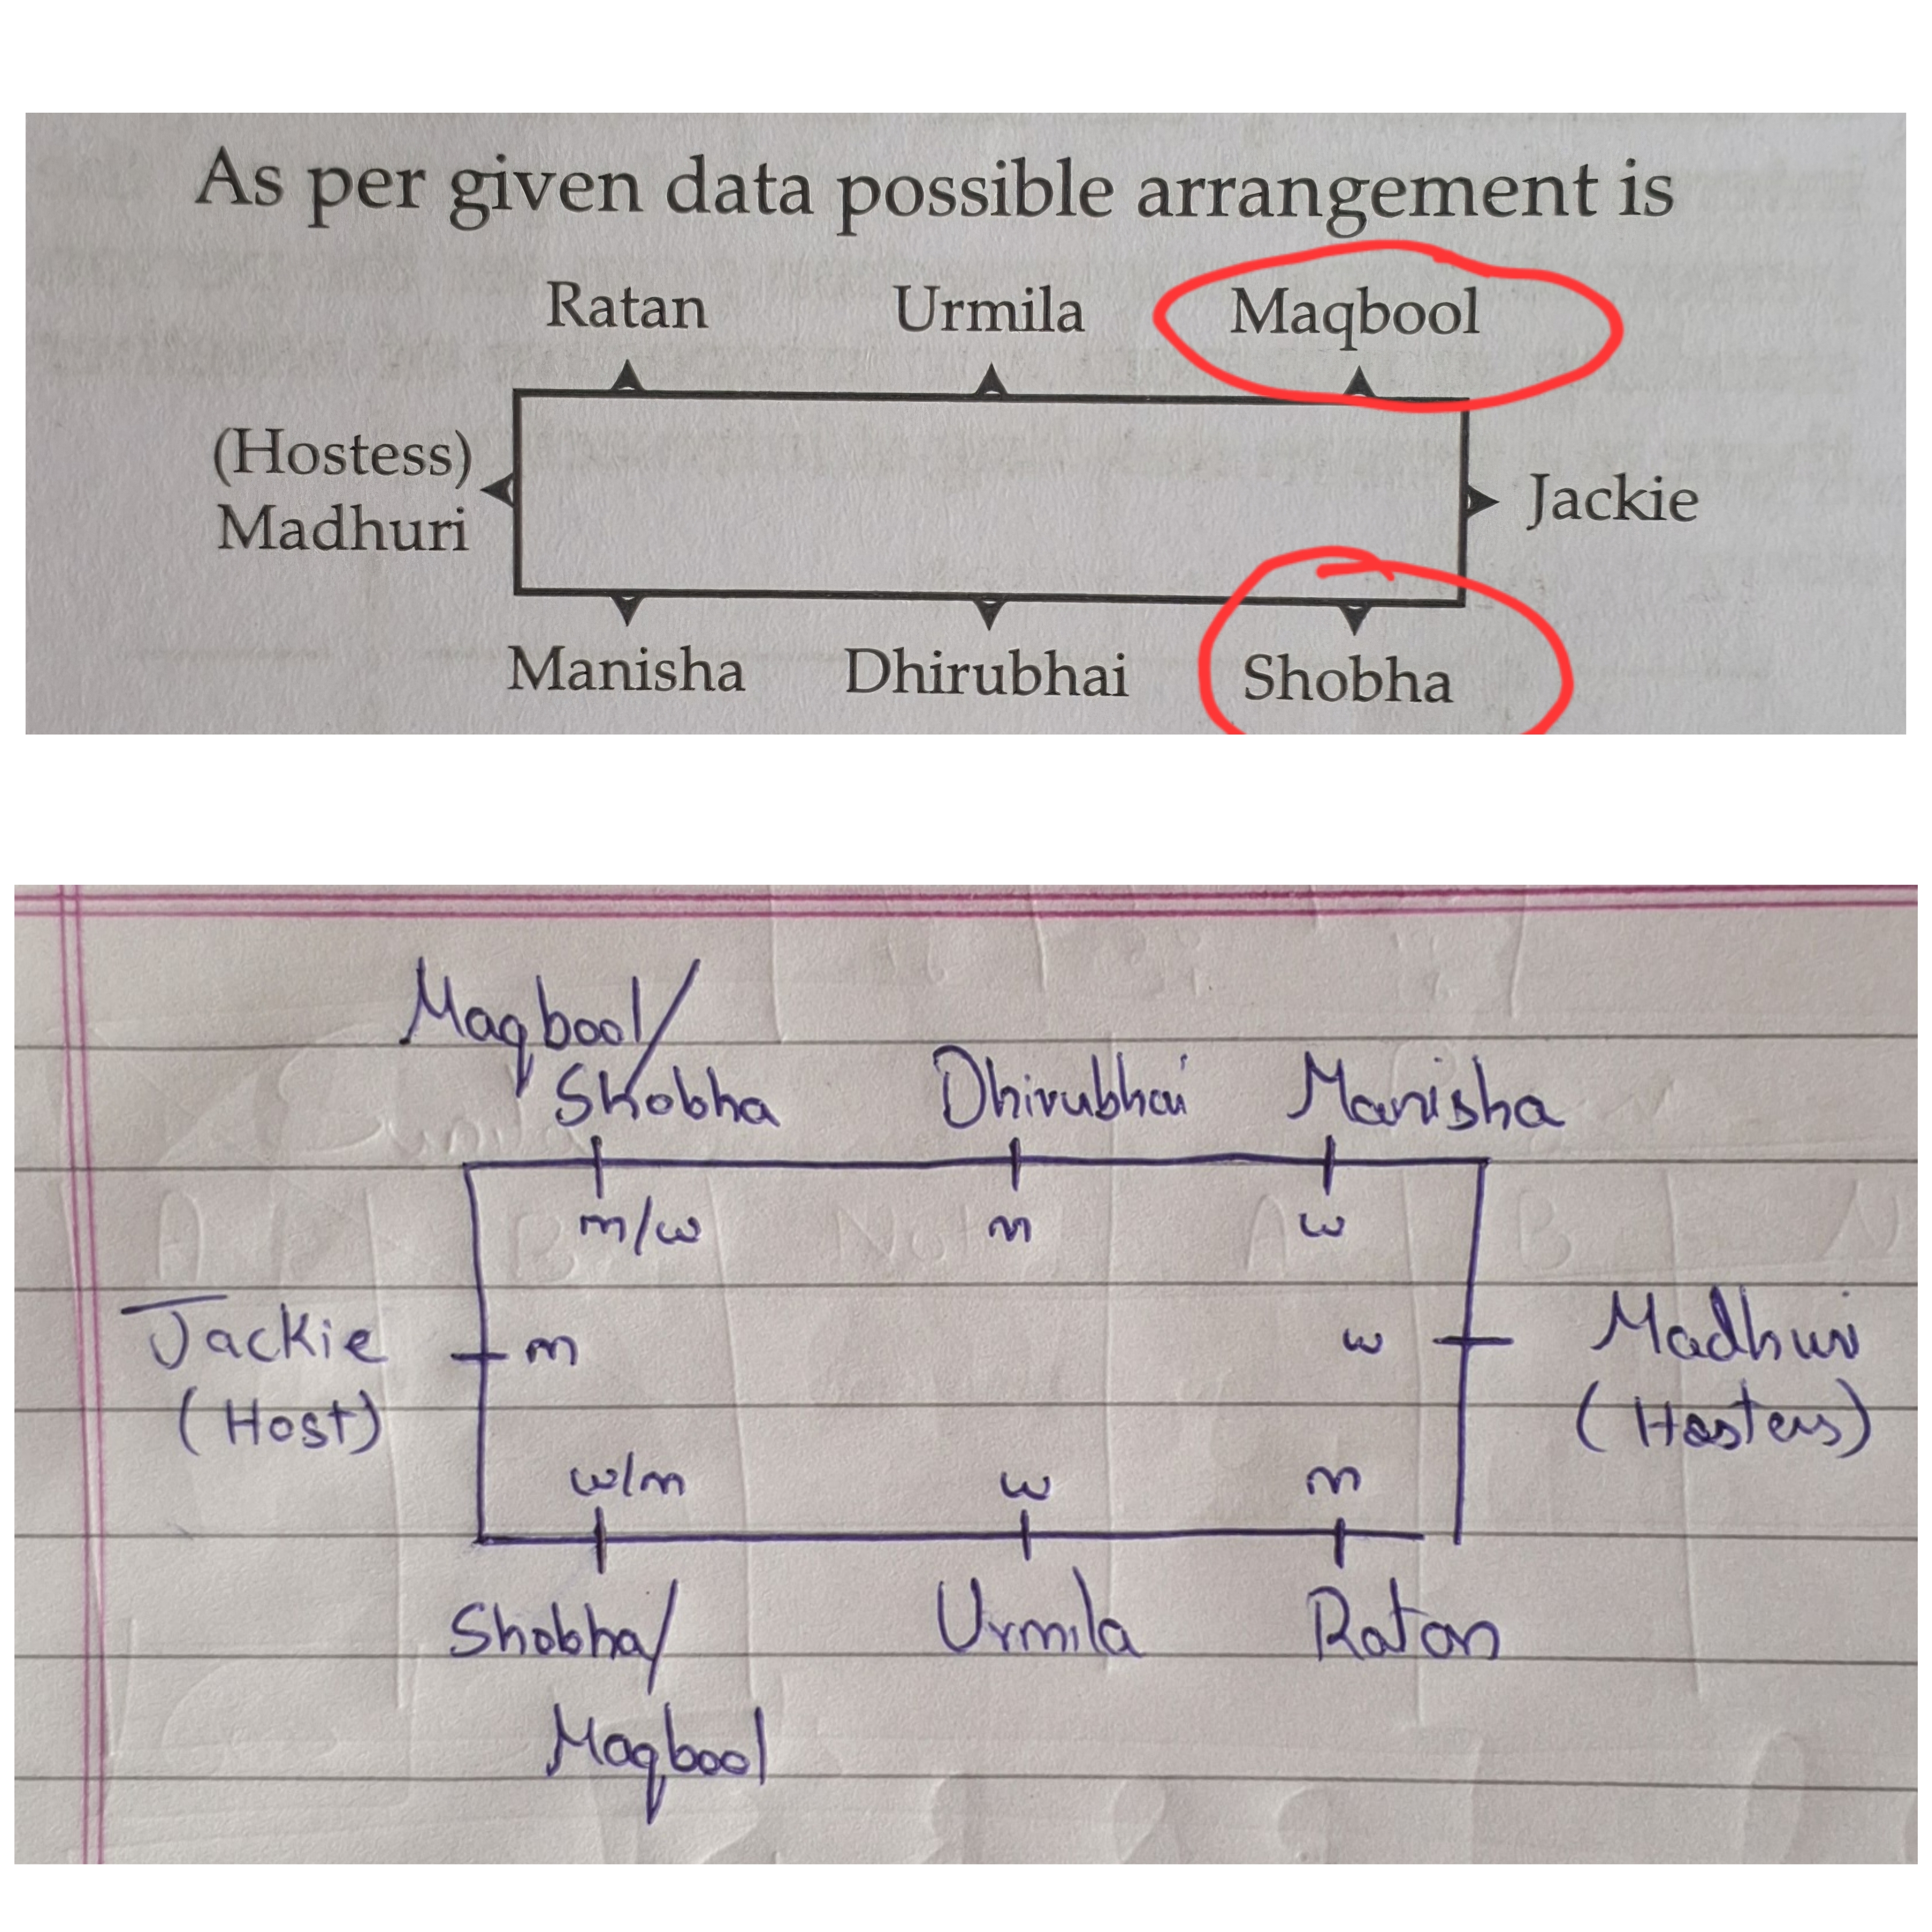 As per given data possible arrangement is
Ratan Urmila Maqbool
(Hostess)
Madhuri
Jackie
Manisha Dhirubhai Shobha
Maqbool/
Shobha Dhirubhai Manisha
m/w m w
Jackie m w Madhuri
(Host) (Hostess)
w/m w m
Shobha/ Urmila Ratan
Maqbool